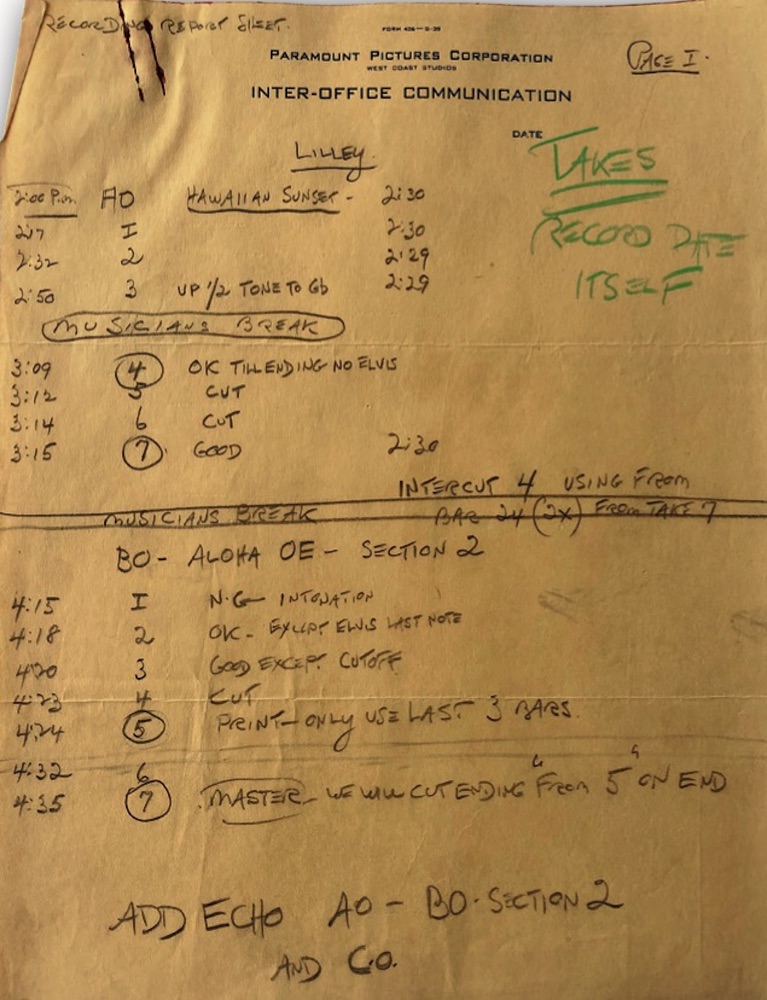 RECORDING REPORT SHEET.
FORM 426—5-39
PARAMOUNT PICTURES CORPORATION
WEST COAST STUDIOS
PAGE I.
INTER-OFFICE COMMUNICATION
DATE
TAKES
RECORD DATE
ITSELF
LILLEY.
2:00 P.M. AO HAWAIIAN SUNSET - 2:30
2:17 I 2:30
2:32 2 2:29
2:50 3 UP 1/2 TONE TO Gb 2:29
MUSICIANS BREAK
3:09 4 OK TILL ENDING NO ELVIS
3:12 5 CUT
3:14 6 CUT
3:15 7 GOOD 2:30
INTERCUT 4 USING FROM
MUSICIANS BREAK BAR 24 (2X) FROM TAKE 7
BO - ALOHA OE - SECTION 2
4:15 I N.G - INTONATION
4:18 2 OK - EXCEPT ELVIS LAST NOTE
4:20 3 GOOD EXCEPT CUTOFF
4:23 4 CUT
4:24 5 PRINT - ONLY USE LAST 3 BARS.
4:32 6
4:35 7 MASTER - WE WILL CUT ENDING "FROM 5" ON END
ADD ECHO AO - BO - SECTION 2
AND CO.